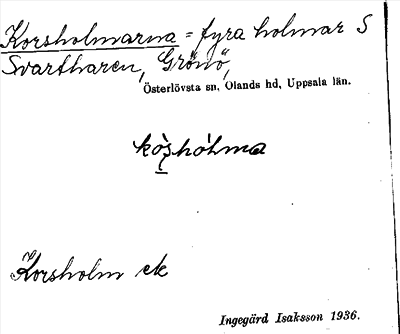 Korsholmarna = fyra holmar S
Svartharen, Grönö,
Österlövsta sn, Olands hd, Uppsala län.
kòṣhólma
Korsholm ek
Ingegärd Isaksson 1936.